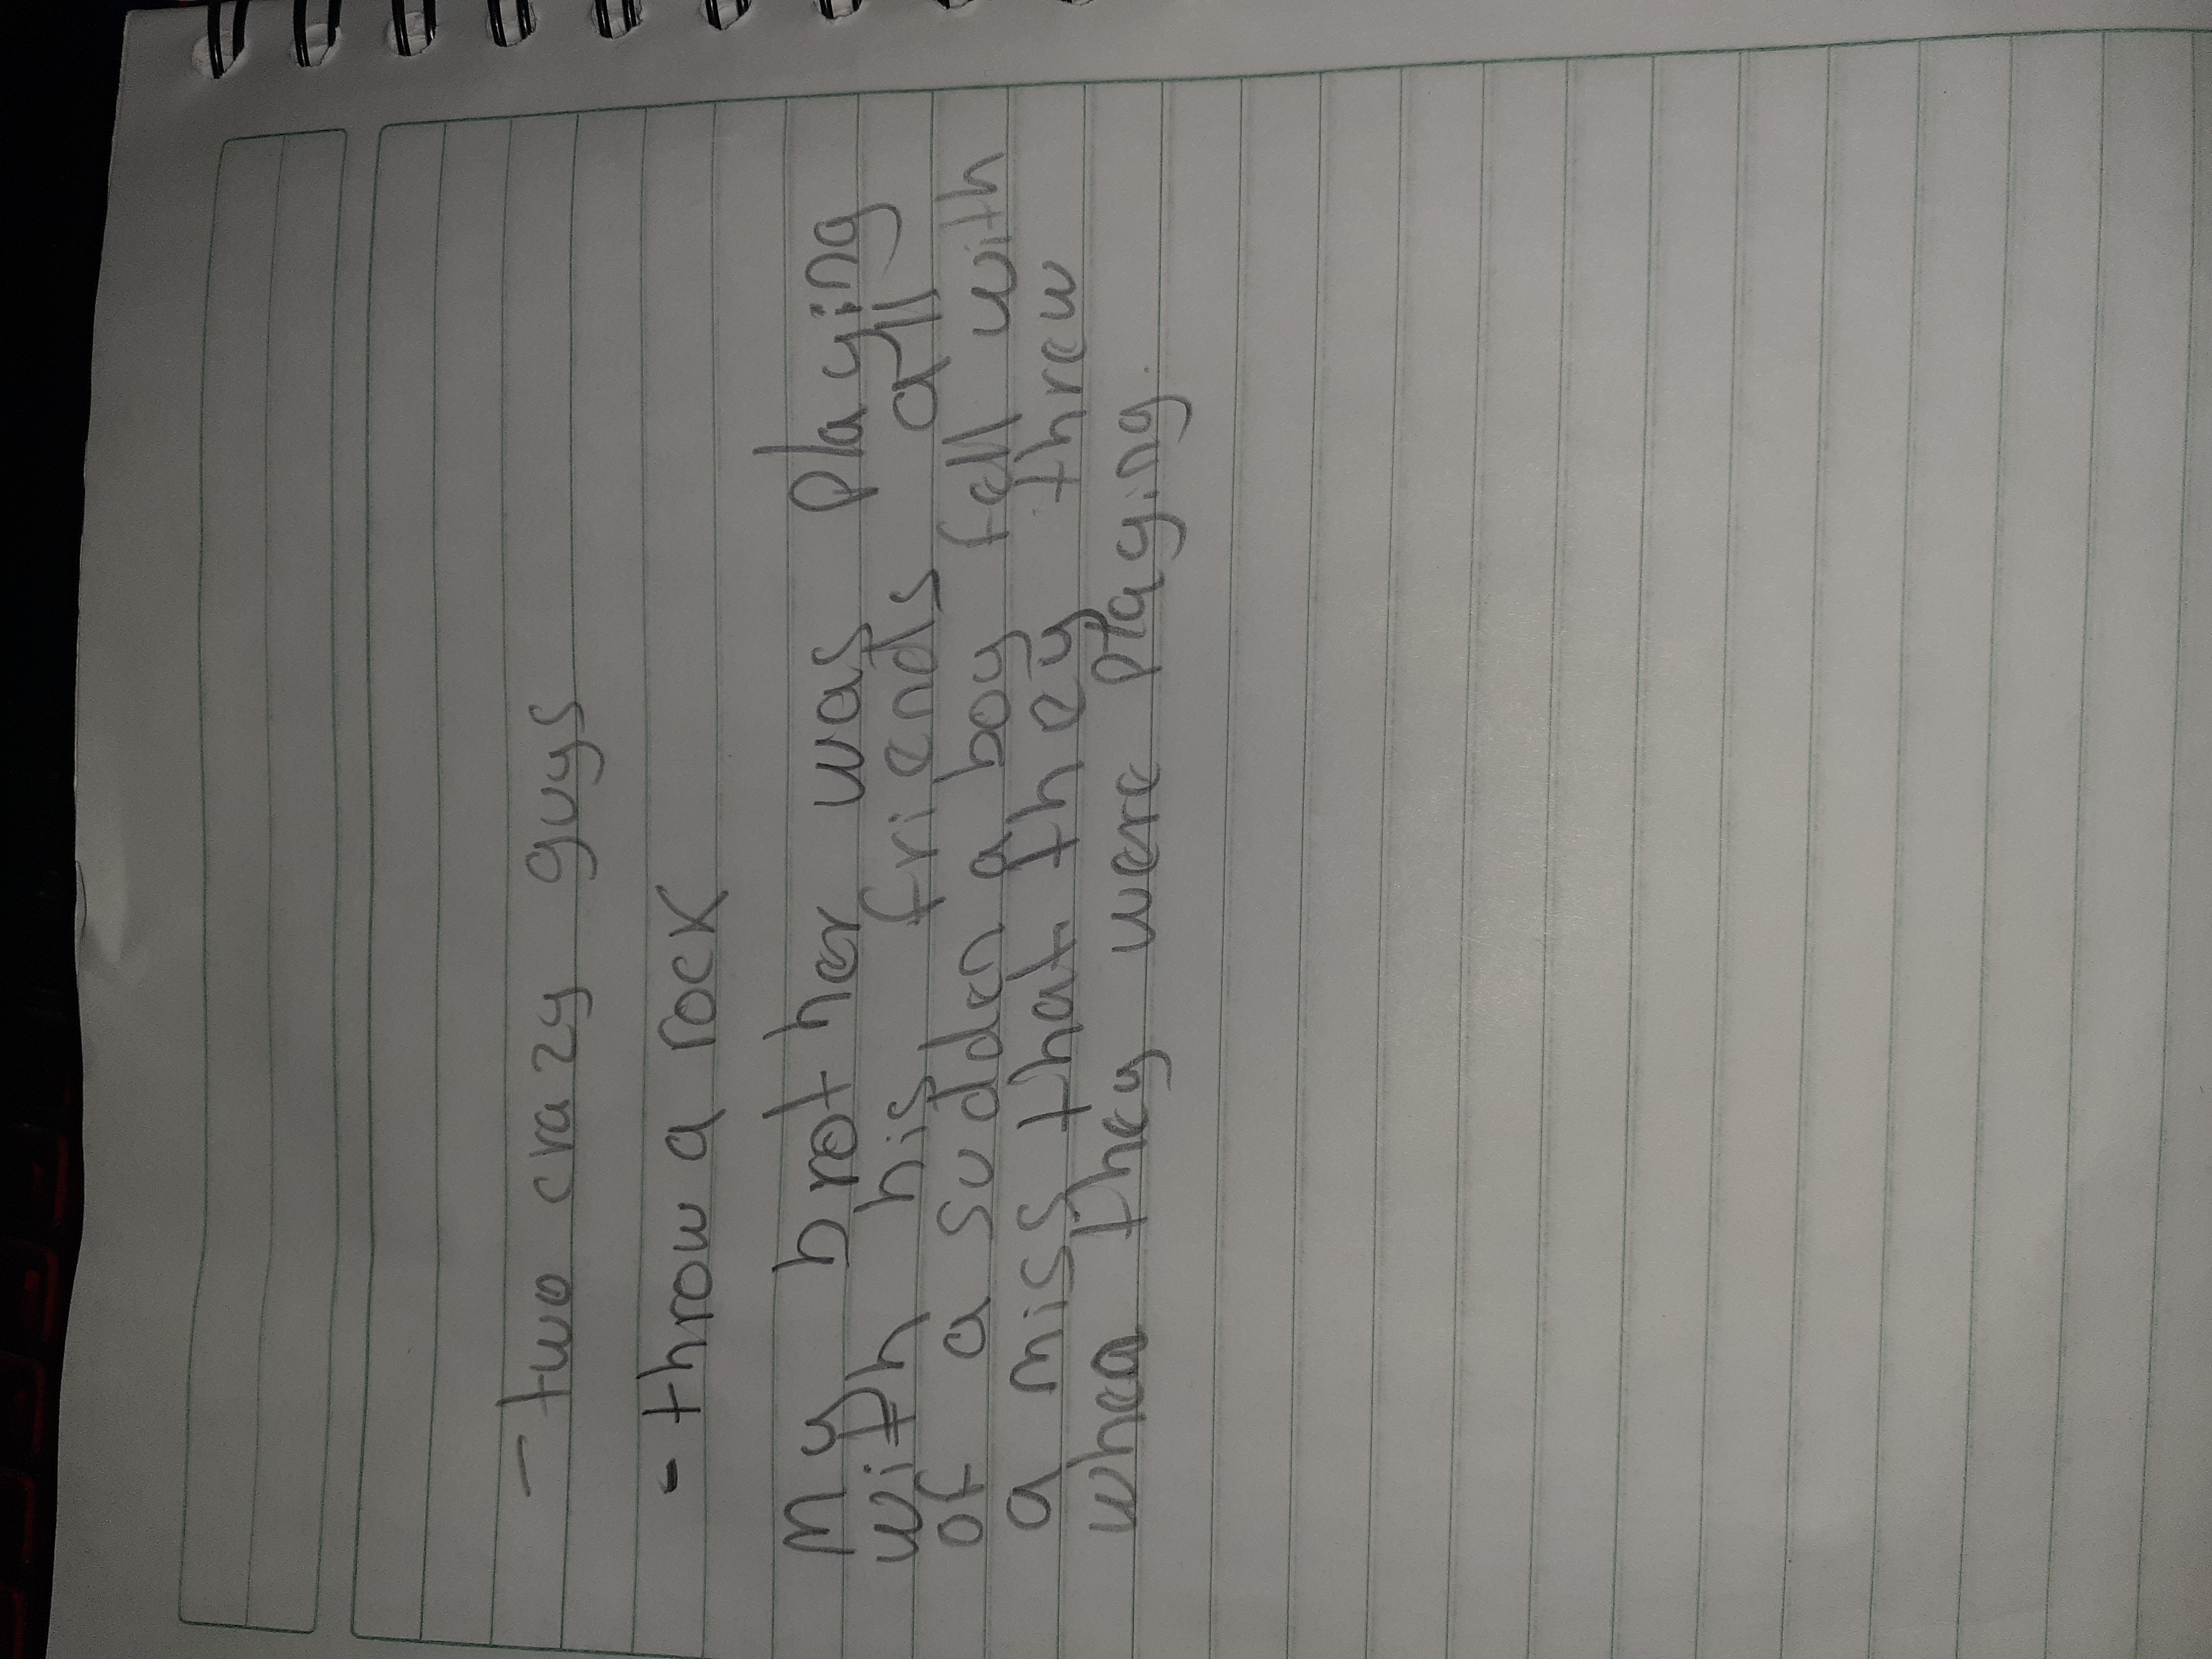 - two crazy guys
- throw a rock
My brother was playing
with his friends all
of a sudden a boy fell with
a miss that they threw
when they were playing.